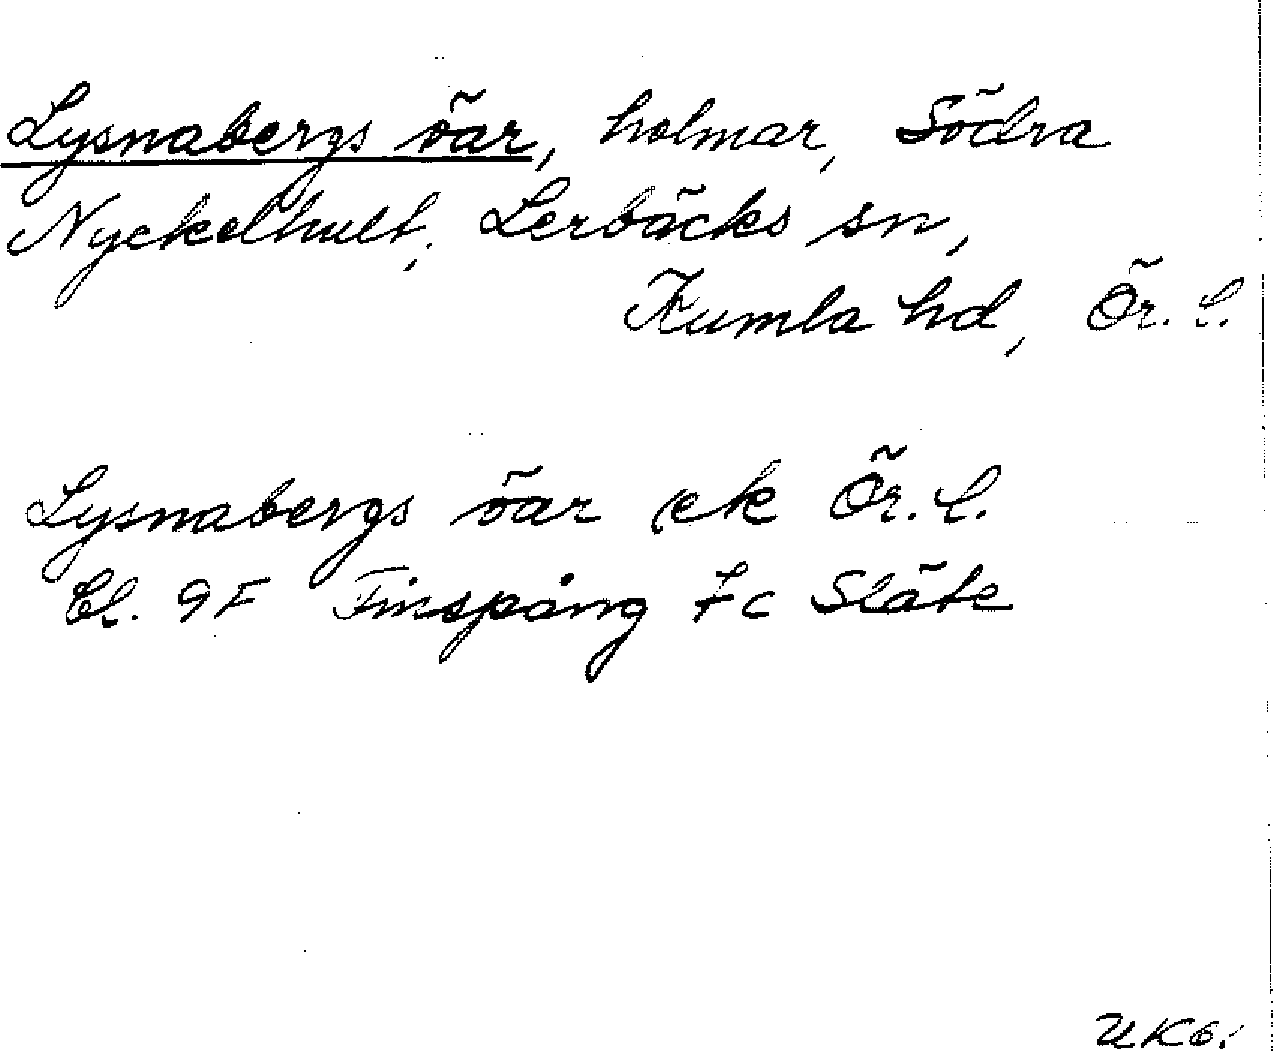 Lysnabergs öar, holmar, Södra
Nyckelhult, Lerbäcks sn,
Kumla hd, Ör. l.
Lysnabergs öar ek Ör. l.
Bl. 9F Finspång 7c Släte
UK6.